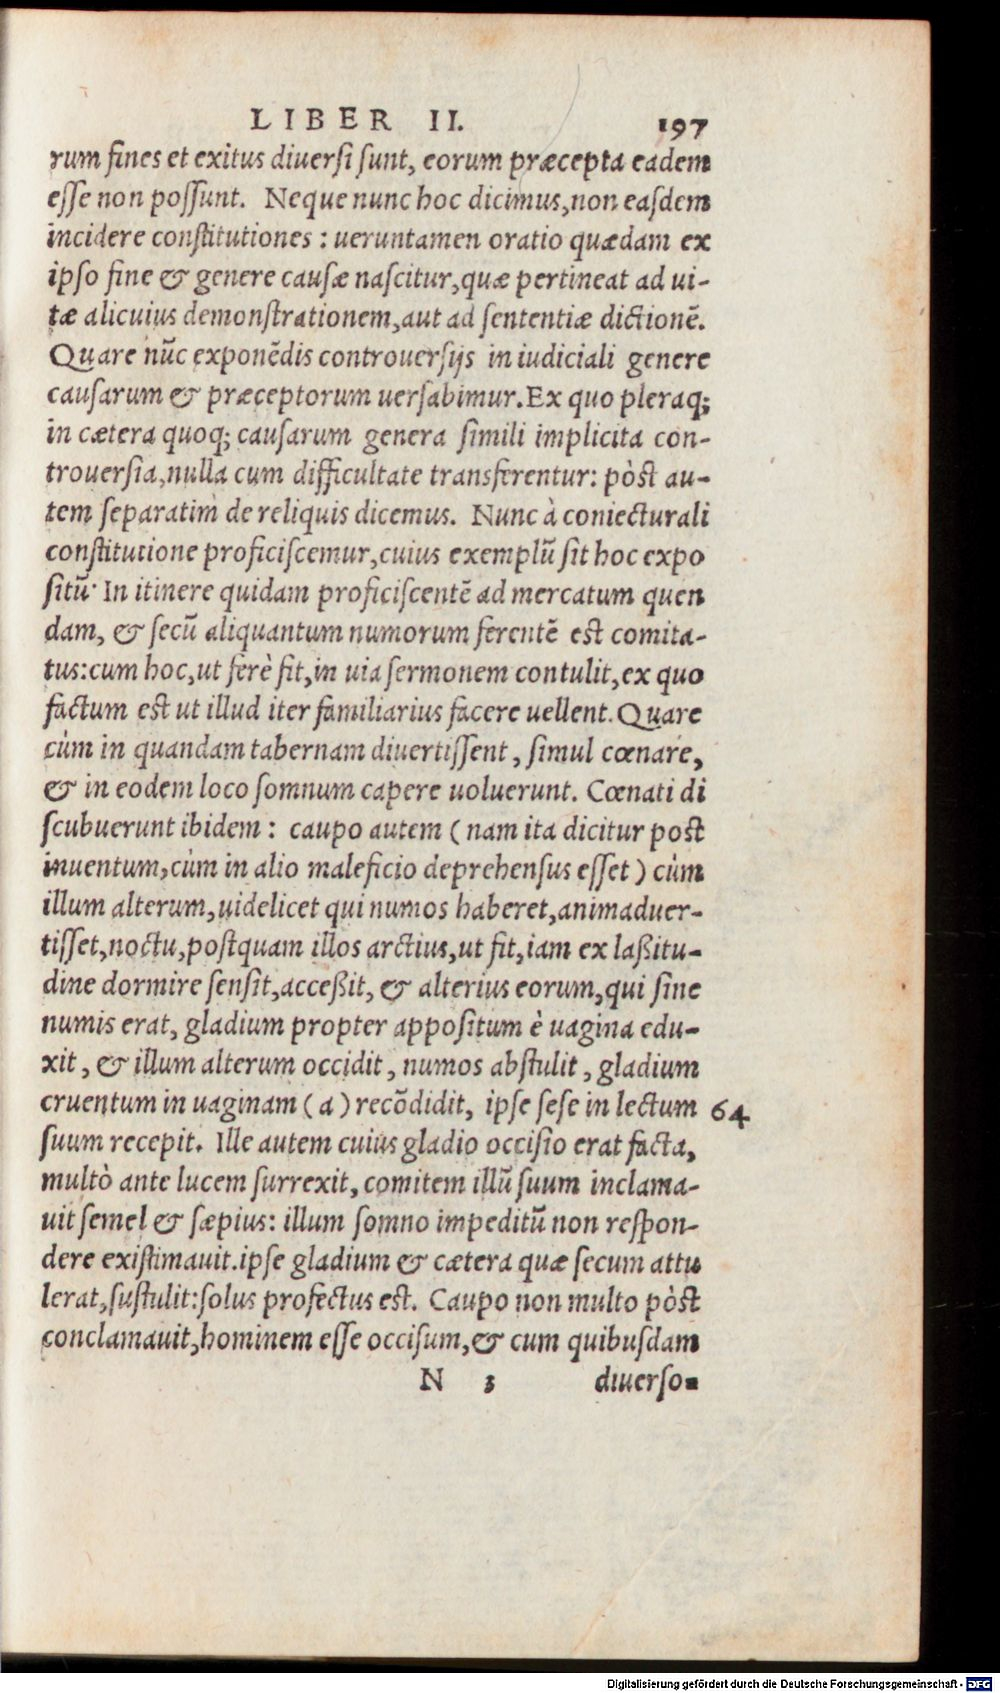 LIBER II. 197
rum fines et exitus diuersi sunt, eorum præcepta eadem
esse non possunt. Neque nunc hoc dicimus, non easdem
incidere constitutiones: ueruntamen oratio quædam ex
ipso fine & genere causæ nascitur, quæ pertineat ad ui-
tæ alicuius demonstrationem, aut ad sententiæ dictionē.
Quare nūc exponēdis controuersijs in iudiciali genere
causarum & præceptorum uersabimur. Ex quo pleraq;
in cætera quoq; causarum genera simili implicita con-
trouersia, nulla cum difficultate transferentur: pòst au-
tem separatim de reliquis dicemus. Nunc à coniecturali
constitutione proficiscemur, cuius exemplū sit hoc expo
sitū· In itinere quidam proficiscentē ad mercatum quen
dam, & secū aliquantum numorum ferentē est comita-
tus: cum hoc, ut ferè fit, in uia sermonem contulit, ex quo
factum est ut illud iter familiarius facere uellent. Quare
cùm in quandam tabernam diuertissent, simul cœnare,
& in eodem loco somnum capere uoluerunt. Cœnati di
scubuerunt ibidem: caupo autem (nam ita dicitur post
inuentum, cùm in alio maleficio deprehensus esset) cùm
illum alterum, uidelicet qui numos haberet, animaduer-
tisset, noctu, postquam illos arctius, ut fit, iam ex laßitu-
dine dormire sensit, acceßit, & alterius eorum, qui sine
numis erat, gladium propter appositum è uagina edu-
xit, & illum alterum occidit, numos abstulit, gladium
cruentum in uaginam (a) recōdidit, ipse sese in lectum 64
suum recepit. Ille autem cuius gladio occisio erat facta,
multò ante lucem surrexit, comitem illū suum inclama-
uit semel & sæpius: illum somno impeditū non respon-
dere existimauit. ipse gladium & cætera quæ secum attu
lerat, sustulit: solus profectus est. Caupo non multo pòst
conclamauit, hominem esse occisum, & cum quibusdam
N 3 diuerso-
Digitalisierung gefördert durch die Deutsche Forschungsgemeinschaft - DFG